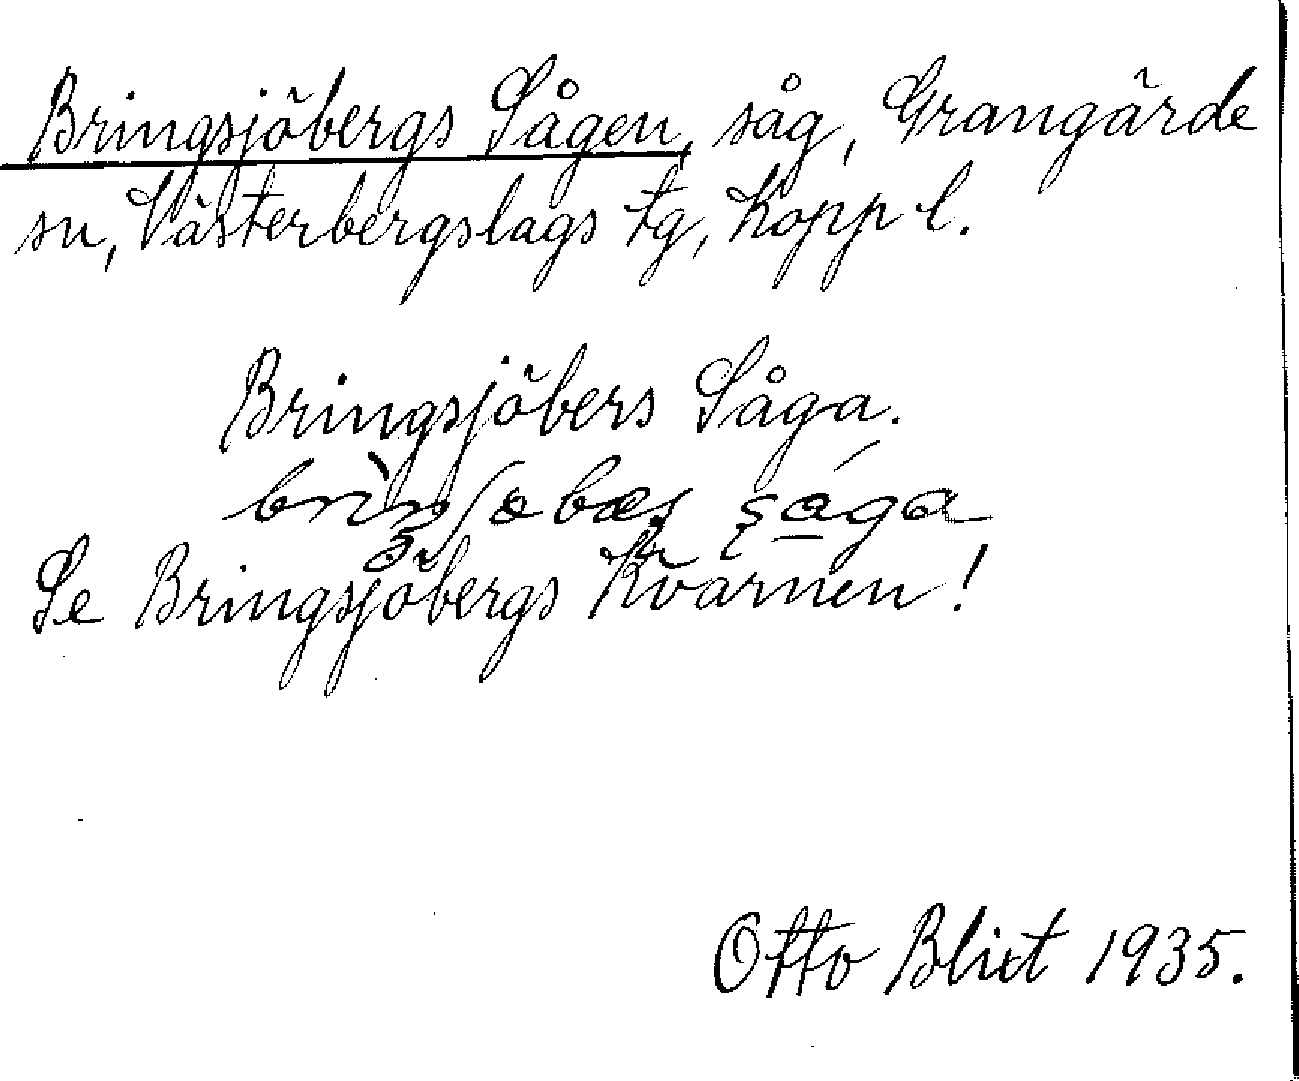 Bringsjöbergs Sågen, såg, Grangärde
sn, Västerbergslags tg, Kopp l.
Bringsjöbers Såga.
Se Bringsjöbergs Kvarnen!
Otto Blixt 1935.